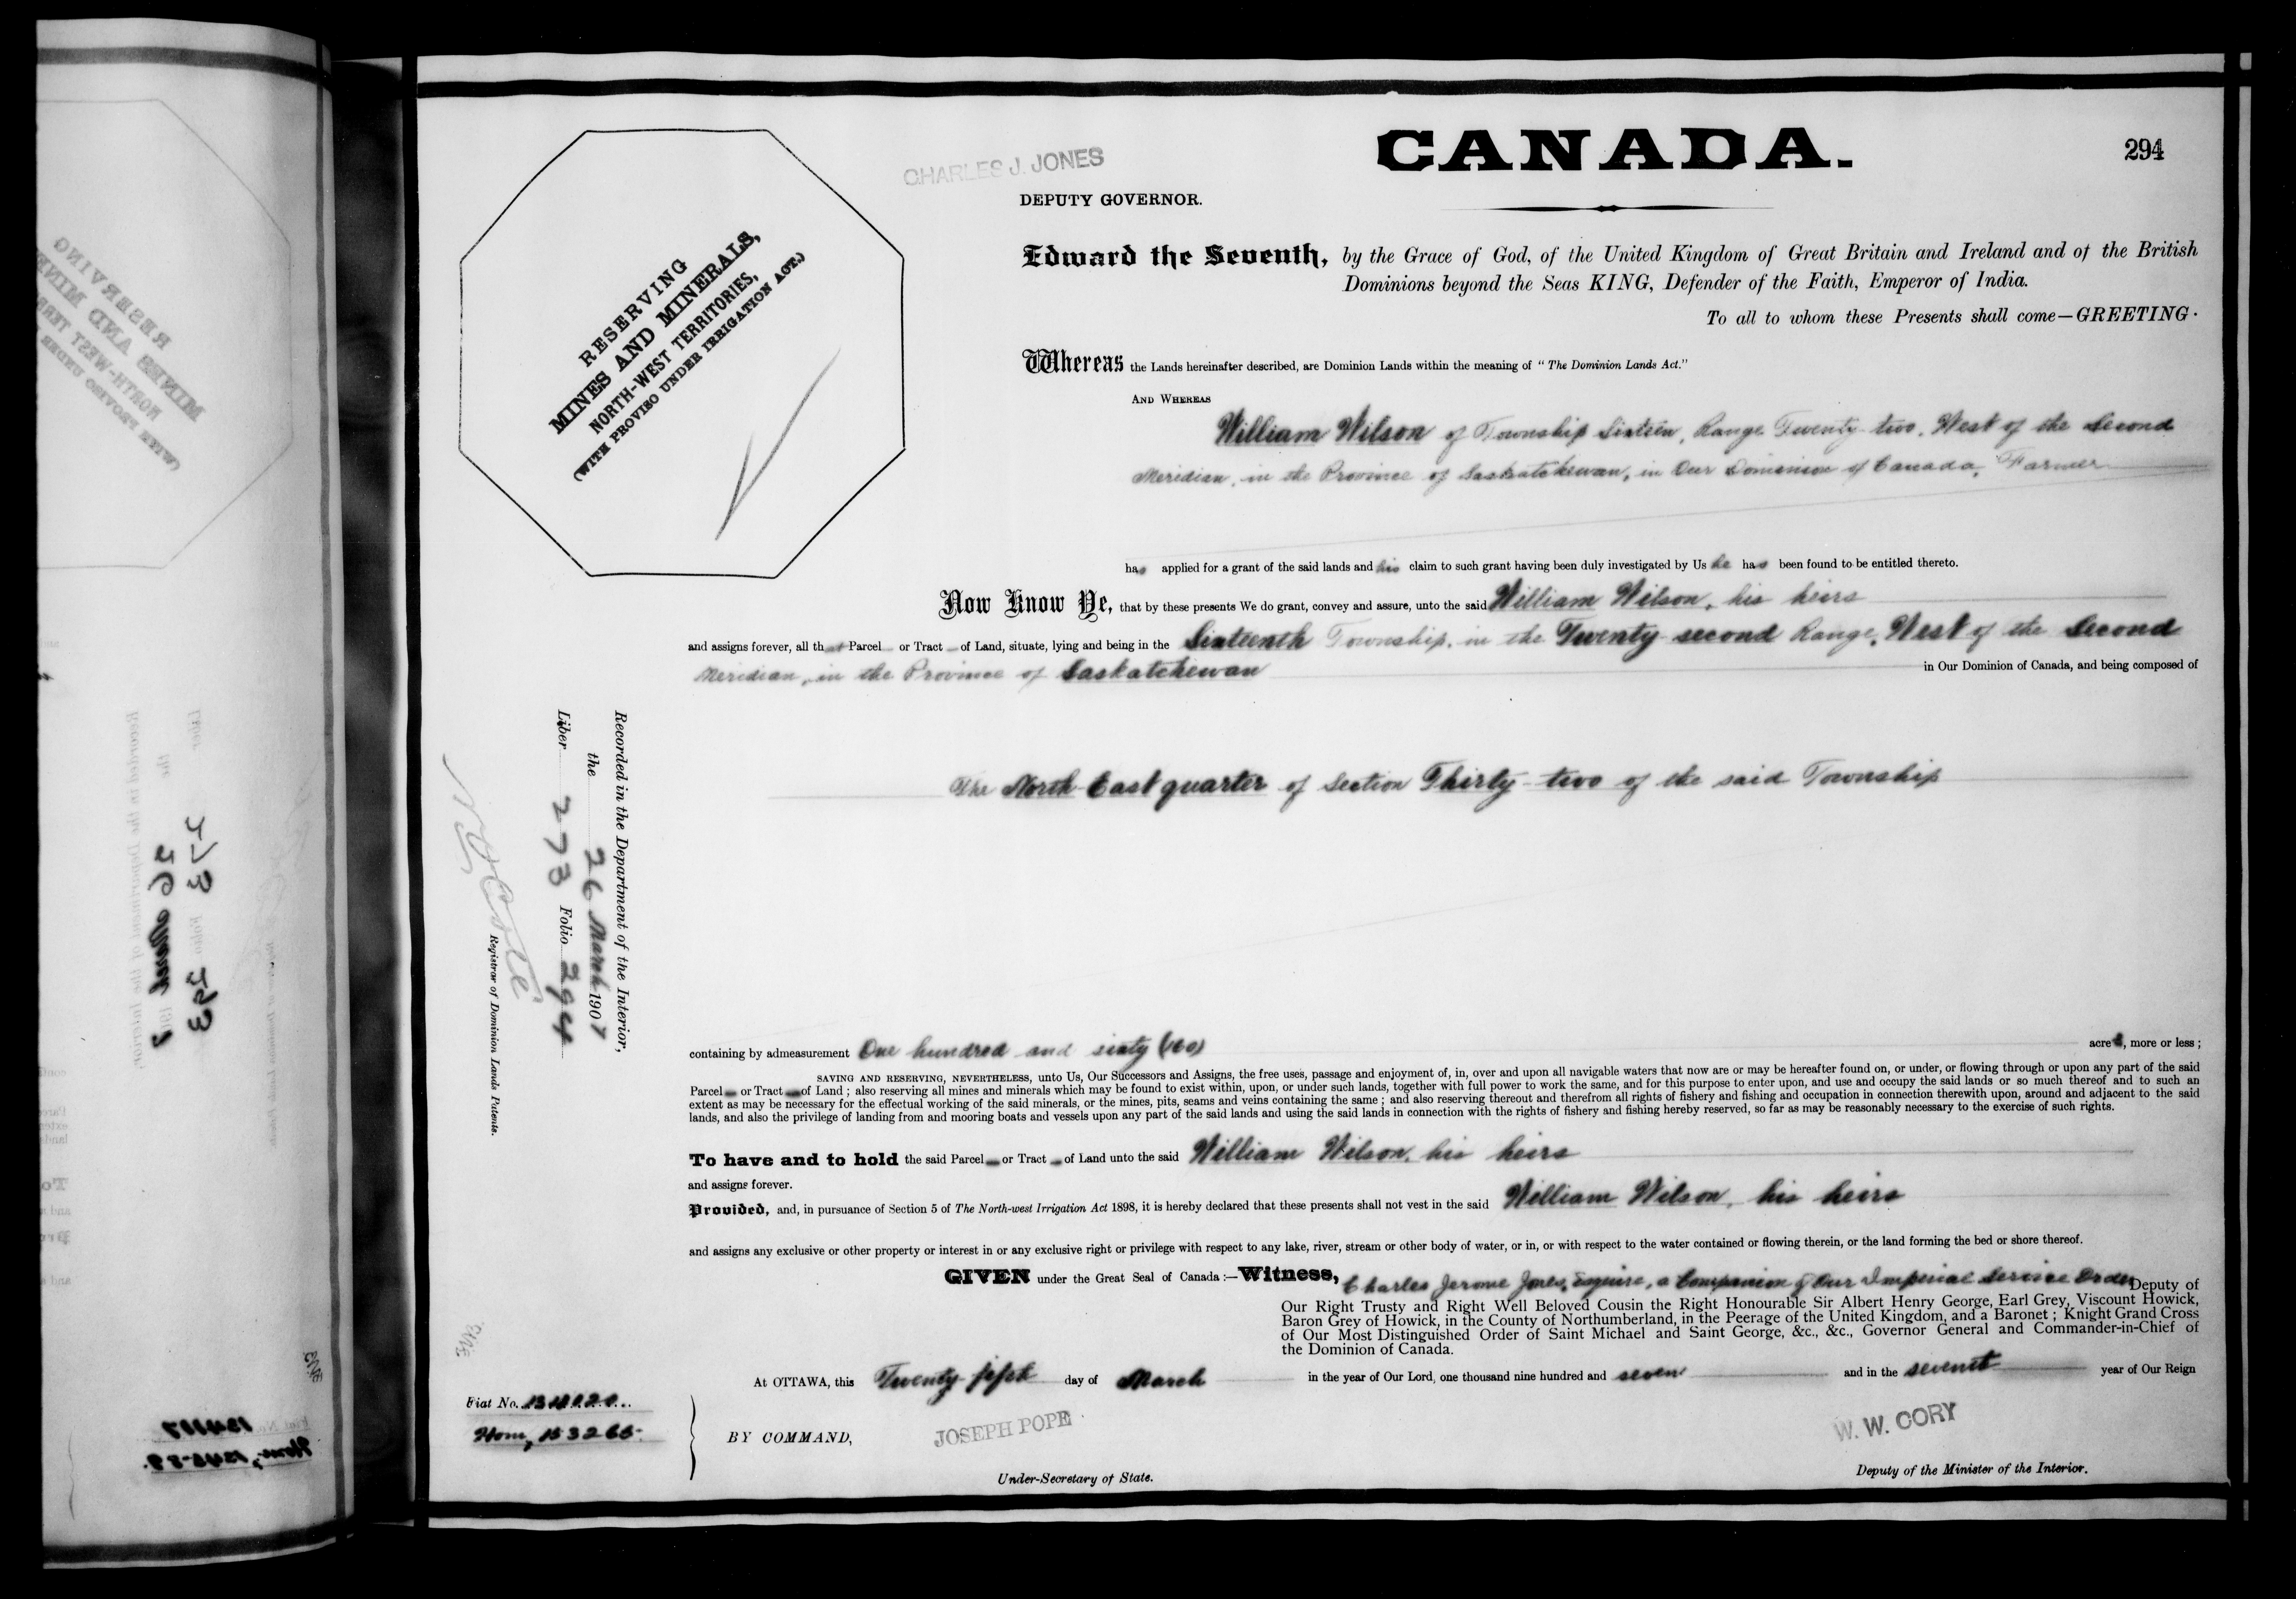 CANADA.
294
CHARLES J. JONES
DEPUTY GOVERNOR.
RESERVING
MINES AND MINERALS,
NORTH-WEST TERRITORIES,
(WITH PROVISO UNDER IRRIGATION ACT.)
Edward the Seventh, by the Grace of God, of the United Kingdom of Great Britain and Ireland and of the British
Dominions beyond the Seas KING, Defender of the Faith, Emperor of India.
To all to whom these Presents shall come—GREETING·
Whereas the Lands hereinafter described, are Dominion Lands within the meaning of "The Dominion Lands Act."
AND WHEREAS
William Wilson of Township Sixteen, Range Twenty-two, West of the Second
Meridian, in the Province of Saskatchewan, in Our Dominion of Canada, Farmer
has applied for a grant of the said lands and his claim to such grant having been duly investigated by Us he has been found to be entitled thereto.
Now Know Ye, that by these presents We do grant, convey and assure, unto the said William Wilson, his heirs
and assigns forever, all that Parcel or Tract of Land, situate, lying and being in the Sixteenth Township, in the Twenty-second Range, West of the Second
Meridian, in the Province of Saskatchewan in Our Dominion of Canada, and being composed of
The North East quarter of Section Thirty-two of the said Township
Recorded in the Department of the Interior,
the 26 March 1907
Liber 273 Folio 294
Registrar of Dominion Lands Patents.
containing by admeasurement One hundred and sixty (160) acres, more or less;
SAVING AND RESERVING, NEVERTHELESS, unto Us, Our Successors and Assigns, the free uses, passage and enjoyment of, in, over and upon all navigable waters that now are or may be hereafter found on, or under, or flowing through or upon any part of the said
Parcel or Tract of Land; also reserving all mines and minerals which may be found to exist within, upon, or under such lands, together with full power to work the same, and for this purpose to enter upon, and use and occupy the said lands or so much thereof and to such an
extent as may be necessary for the effectual working of the said minerals, or the mines, pits, seams and veins containing the same; and also reserving thereout and therefrom all rights of fishery and fishing and occupation in connection therewith upon, around and adjacent to the said
lands, and also the privilege of landing from and mooring boats and vessels upon any part of the said lands and using the said lands in connection with the rights of fishery and fishing hereby reserved, so far as may be reasonably necessary to the exercise of such rights.
To have and to hold the said Parcel or Tract of Land unto the said William Wilson, his heirs
and assigns forever.
Provided, and, in pursuance of Section 5 of The North-west Irrigation Act 1898, it is hereby declared that these presents shall not vest in the said William Wilson, his heirs
and assigns any exclusive or other property or interest in or any exclusive right or privilege with respect to any lake, river, stream or other body of water, or in, or with respect to the water contained or flowing therein, or the land forming the bed or shore thereof.
GIVEN under the Great Seal of Canada:—Witness, Charles Jerome Jones, Esquire, a Companion of Our Imperial Service Order Deputy of
Our Right Trusty and Right Well Beloved Cousin the Right Honourable Sir Albert Henry George, Earl Grey, Viscount Howick,
Baron Grey of Howick, in the County of Northumberland, in the Peerage of the United Kingdom, and a Baronet; Knight Grand Cross
of Our Most Distinguished Order of Saint Michael and Saint George, &c., &c., Governor General and Commander-in-Chief of
the Dominion of Canada.
At OTTAWA, this Twenty-fifth day of March in the year of Our Lord, one thousand nine hundred and seven and in the seventh year of Our Reign
Fiat No.
Hom,
BY COMMAND,
JOSEPH POPE
Under-Secretary of State.
W. W. CORY
Deputy of the Minister of the Interior.